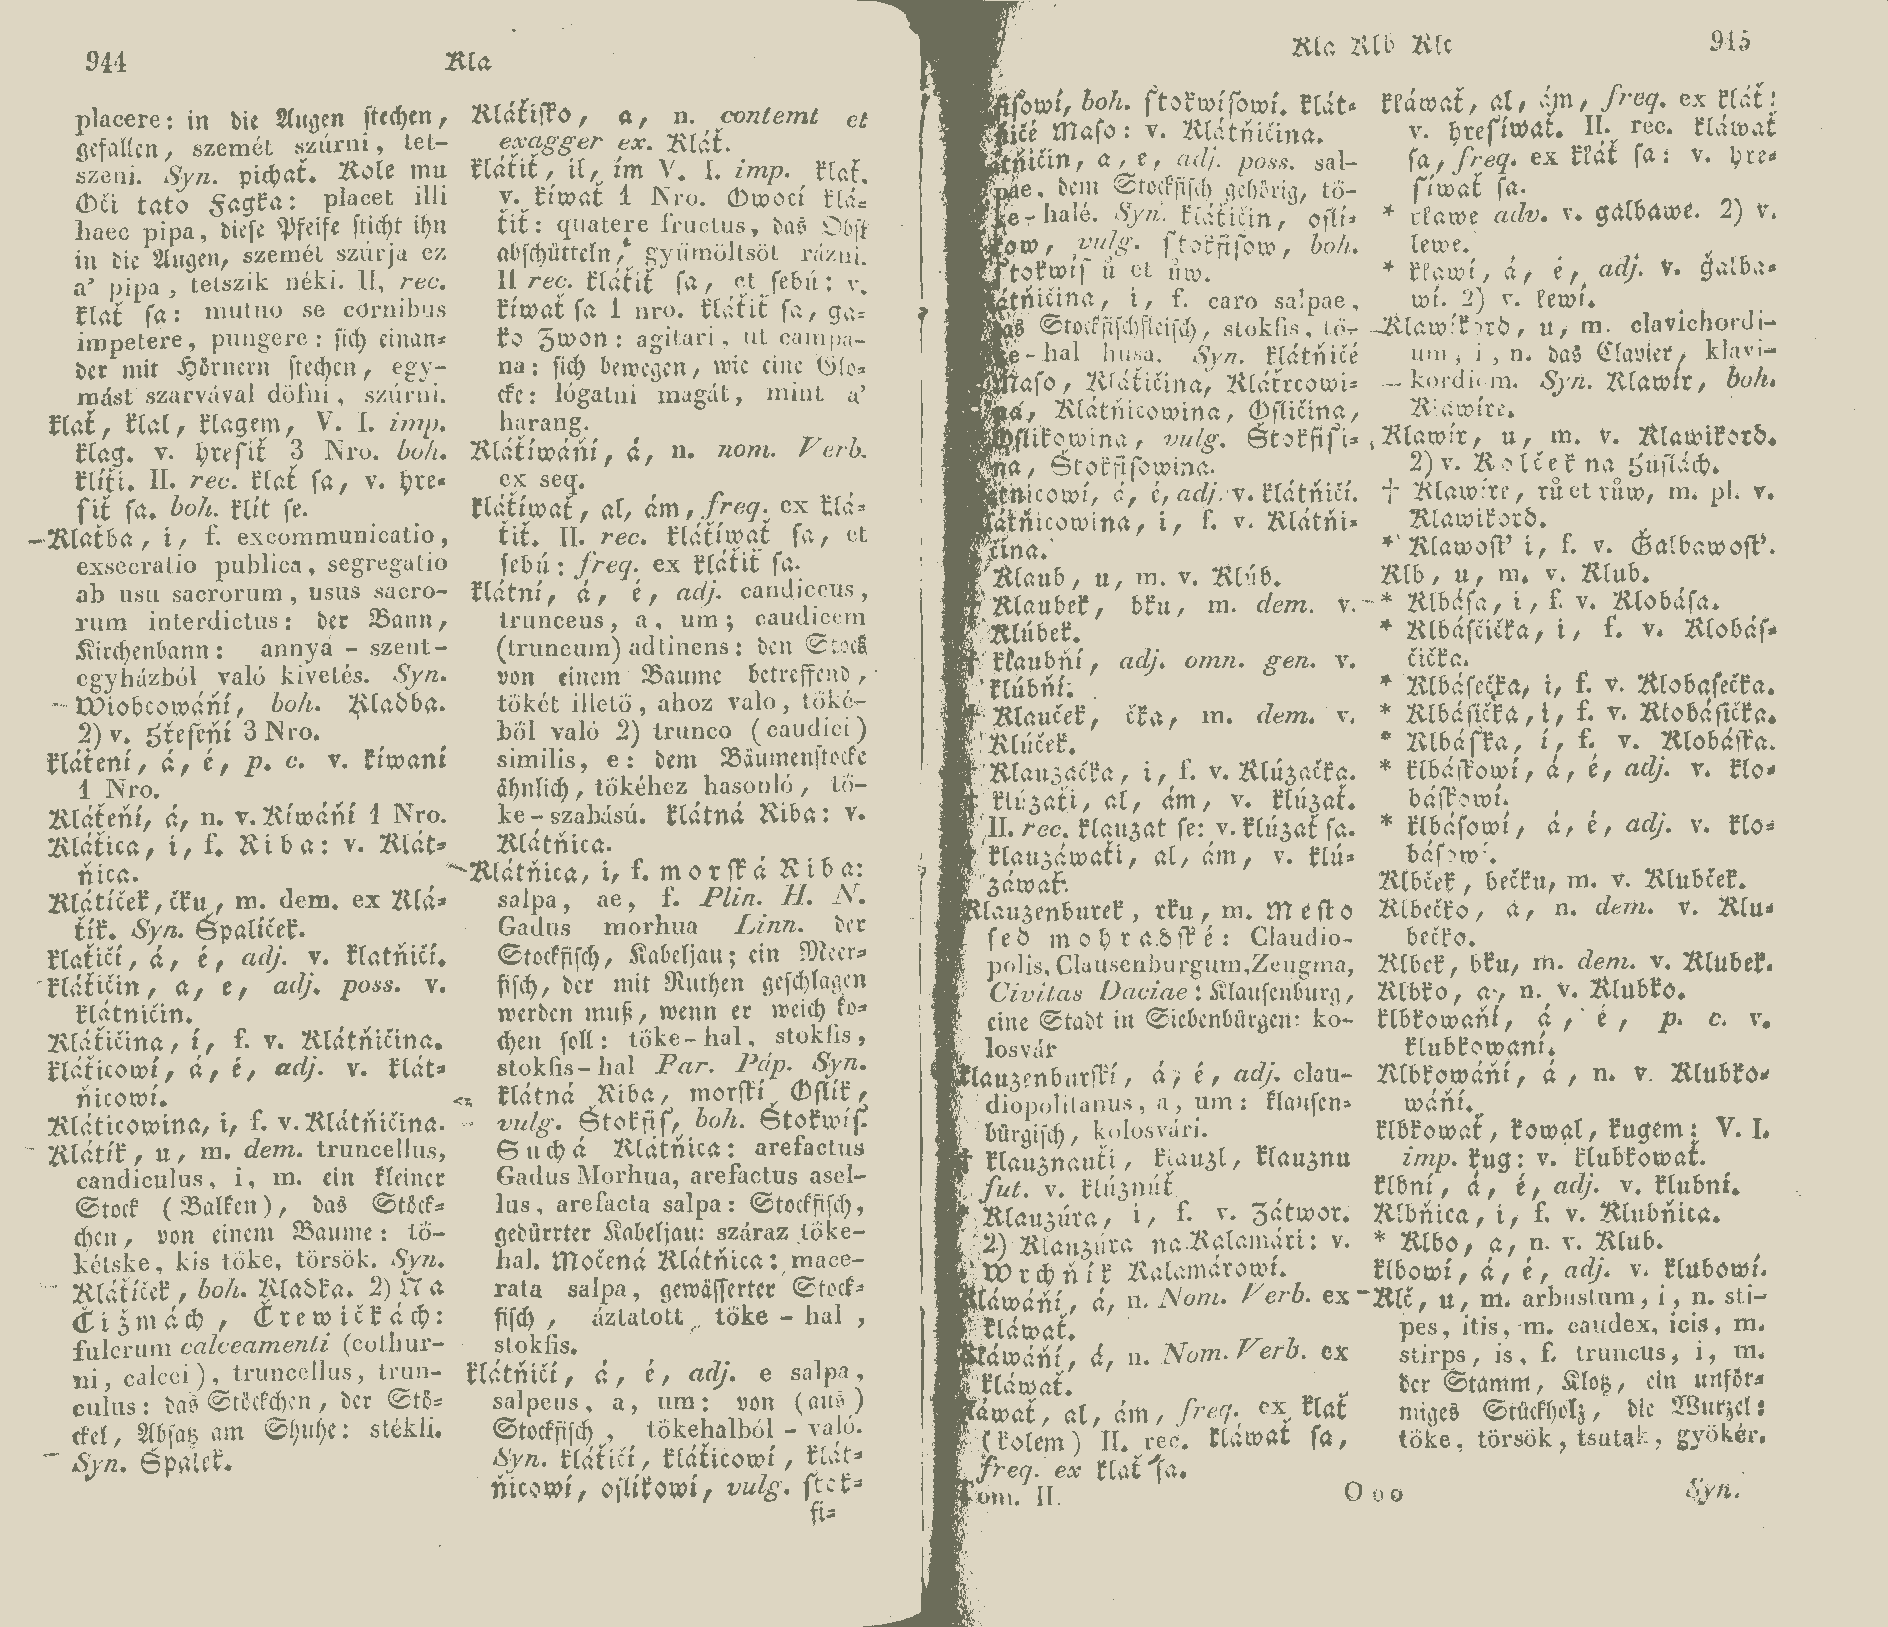 944
Kla
placere: in die Augen ſtechen,
gefallen, szemét szúrni, tet-
szeni. Syn. pichať. Kole mu
Oči tato Fagka: placet illi
haec pipa, dieſe Pfeife ſticht ihn
in die Augen, szemét szúrja ez
a' pipa, tetszik néki. II, rec.
klať ſa: mutuo se cornibus
impetere, pungere: ſich einan=
der mit Hörnern ſtechen, egy-
mást szarvával döfni, szúrni.
klať, klal, klagem, V. I. imp.
klag. v. hreſiť 3 Nro. boh.
klíti. II. rec. klať ſa, v. hre=
ſiť ſa. boh. klít ſe.
Klaťba, i, f. excommunicatio,
exsecratio publica, segregatio
ab usu sacrorum, usus sacro-
rum interdictus: der Bann,
Kirchenbann: annya - szent-
egyházból való kivetés. Syn.
Wiobcowáňí, boh. Kladba.
2) v. Hřeſeňí 3 Nro.
kláťení, á, é, p. c. v. kíwaní
1 Nro.
Kláťeňí, á, n. v. Kíwáňí 1 Nro.
Kláťica, i, f. Riba: v. Klát=
ňica.
Klátíček, čku, m. dem. ex Klá=
tík. Syn. Špalíček.
klaťičí, á, é, adj. v. klatňičí.
kláťičin, a, e, adj. poss. v.
klátničin.
Kláťičina, i, f. v. Klátňičina.
kláťicowí, á, é, adj. v. klát=
ňicowí.
Kláticowina, i, f. v. Klátňičina.
Klátík, u, m. dem. truncellus,
candiculus, i, m. ein kleiner
Stock (Balken), das Stöck=
chen, von einem Baume: tö-
kétske, kis töke, törsök. Syn.
Klátíček, boh. Kladka. 2) Na
Čižmách, Črewičkách:
fulcrum calceamenti (cothur-
ni, calcei), truncellus, trun-
culus: das Stöckchen, der Stö=
ckel, Abſatz am Shuhe: stékli.
Syn. Špalek.
Kláťiſko, a, n. contemt et
exagger ex. Kláť.
kláťiť, il, ím V. I. imp. klať.
v. kíwať 1 Nro. Owocí klá=
ťiť: quatere fructus, das Obſt
abſchütteln, gyümöltsöt rázni.
II rec. kláťiť ſa, et ſebú: v.
kíwať ſa 1 nro. kláťiť ſa, ga=
ko Zwon: agitari, ut campa-
na: ſich bewegen, wie eine Glo=
cke: lógatni magát, mint a'
harang.
Kláťíwáňí, á, n. nom. Verb.
ex seq.
kláťíwať, al, ám, freq. ex klá=
ťiť. II. rec. kláťíwať ſa, et
ſebú: freq. ex kláťiť ſa.
klátní, á, é, adj. candiceus,
trunceus, a, um; caudicem
(truncum) adtinens: den Stock
von einem Baume betreffend,
tökét illető, ahoz valo, töké-
ből való 2) trunco (caudici)
similis, e: dem Bäumenſtocke
ähnlich, tökéhez hasonló, tö-
ke-szabású. klátná Riba: v.
Klátňica.
Klátňica, i, f. morſká Riba:
salpa, ae, f. Plin. H. N.
Gadus morhua Linn. der
Stockfiſch, Kabeljau; ein Meer=
fiſch, der mit Ruthen geſchlagen
werden muß, wenn er weich ko=
chen ſoll: töke-hal, stokfis,
stokfis-hal Par. Páp. Syn.
klátná Riba, morſkí Oſlík,
vulg. Štokfiſ, boh. Štokwíſ.
Suchá Klátňica: arefactus
Gadus Morhua, arefactus asel-
lus, arefacta salpa: Stockfiſch,
gedürrter Kabeljau: száraz töke-
hal. Močená Klátňica: mace-
rata salpa, gewäſſerter Stock=
fiſch, áztatott töke-hal,
stokfis.
klátňičí, á, é, adj. e salpa,
salpeus, a, um: von (aus)
Stockfiſch, tökehalból - való.
Syn. kláťičí, kláťicowí, klát=
ňicowí, oſlíkowí, vulg. ſtok=
fi=
Kla Klb Klc
945
fiſowí, boh. ſtokwíſowí. klát=
ňičé Maſo: v. Klátňičina.
klátňičin, a, e, adj. poss. sal-
pae, dem Stockfiſch gehörig, tö-
ke-halé. Syn. kláťičin, oſlí=
kow, vulg. ſtokfiſow, boh.
ſtokwíſ ů et ůw.
Klátňičina, i, f. caro salpae,
das Stockfiſchfleiſch, stokfis, tö-
ke-hal husa. Syn. klátňičé
Maſo, Kláťičina, Kláťicowi=
na, Klátňicowina, Oſličina,
Oſlikowina, vulg. Štokfiſi=
na, Štokfiſowina.
klátnicowí, á, é, adj. v. klátňičí.
Klátňicowina, i, f. v. Klátňi=
čina.
Klaub, u, m. v. Klúb.
Klaubek, bku, m. dem. v.
Klúbek.
† klaubňí, adj. omn. gen. v.
klúbňí.
Klauček, čka, m. dem. v.
Klúček.
Klauzačka, i, f. v. Klúzačka.
† klúzati, al, ám, v. klúzať.
II. rec. klauzat ſe: v. klúzať ſa.
klauzáwati, al, ám, v. klú=
záwať.
Klauzenburek, rku, m. Meſto
ſedmohradſké: Claudio-
polis, Clausenburgum, Zeugma,
Civitas Daciae: Klauſenburg,
eine Stadt in Siebenbürgen: ko-
losvár
klauzenburſkí, á, é, adj. clau-
diopolitanus, a, um: klauſen=
bürgiſch, kolosvári.
† klauznauti, klauzl, klauznu
fut. v. klúznúť
Klauzúra, i, f. v. Zátwor.
2) Klauzúra na Kalamári: v.
Wrchňík Kalamárowí.
Kláwáňí, á, n. Nom. Verb. ex
kláwať.
Kláwáňí, á, n. Nom. Verb. ex
kláwať.
kláwať, al, ám, freq. ex klať
(kolem) II. rec. kláwať ſa,
freq. ex klať ſa.
Tom. II.
kláwať, al, ám, freq. ex kláť:
v. hreſíwať. II. rec. kláwať
ſa, freq. ex kláť ſa: v. hre=
ſíwať ſa.
* klawe adv. v. galbawe. 2) v.
lewe.
* klawí, á, é, adj. v. ğalba=
wí. 2) v. lewí.
Klawíkord, u, m. clavichordi-
um, i, n. das Clavier, klavi-
kordiom. Syn. Klawír, boh.
Klawíre.
Klawír, u, m. v. Klawikord.
2) v. Kolček na Huſlách.
† Klawíre, rů et růw, m. pl. v.
Klawikord.
* Klawoſť i, f. v. Ğalbawoſť.
Klb, u, m. v. Klub.
* Klbáſa, i, f. v. Klobáſa.
* Klbáſčička, i, f. v. Klobáſ=
čička.
* Klbáſečka, i, f. v. Klobaſečka.
* Klbáſička, i, f. v. Klobáſička.
* Klbáſka, i, f. v. Klobáſka.
* klbáſkowí, á, é, adj. v. klo=
báſkowí.
* klbáſowí, á, é, adj. v. klo=
báſowí.
Klbček, bečku, m. v. Klubček.
Klbečko, a, n. dem. v. Klu=
bečko.
Klbek, bku, m. dem. v. Klubek.
Klbko, a, n. v. Klubko.
klbkowaňí, á, é, p. c. v.
klubkowaní.
Klbkowáňí, á, n. v. Klubko=
wáňí.
klbkowať, kowal, kugem: V. I.
imp. kug: v. klubkowať.
klbní, á, é, adj. v. klubní.
Klbňica, i, f. v. Klubňica.
* Klbo, a, n. v. Klub.
klbowí, á, é, adj. v. klubowí.
Klč, u, m. arbustum, i, n. sti-
pes, itis, m. caudex, icis, m.
stirps, is, f. truncus, i, m.
der Stamm, Klotz, ein unför=
miges Stückholz, die Wurzel:
töke, törsök, tsutak, gyökér.
Ooo
Syn.